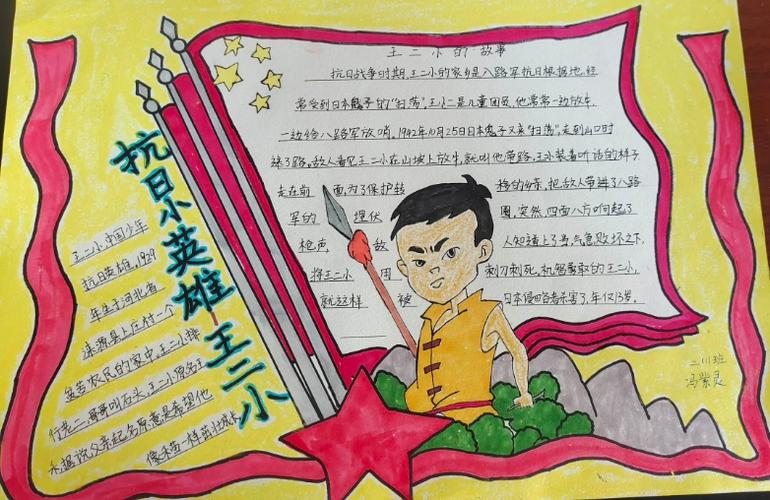 抗日小英雄王二小
王二小的故事
抗日战争时期,王二小的家乡是八路军抗日根据地,经
常受到日本鬼子的"扫荡",王小二是儿童团员,他常常一边放牛,
一边给八路军放哨。1942年10月25日日本鬼子又来"扫荡",走到山口时
迷了路。敌人看见王二小在山坡上放牛,就叫他带路。王小装着听话的样子
走在前面,为了保护转移的乡亲,把敌人带进了八路
军的埋伏圈,突然,四面八方响起了
枪声,敌人知道上了当,气急败坏之下,
将王二小用刺刀刺死,机智勇敢的王二小,
就这样被日本侵略者杀害了,年仅13岁。
王二小,中国少年
抗日英雄。1929
年生于河北省
涞源县上庄村一个
贫苦农民的家中,王二小排
行老二,哥哥叫石头,王二小原名王
禾,据说父亲起名原意是希望他
像禾苗一样茁壮成长
二川班
冯紫灵